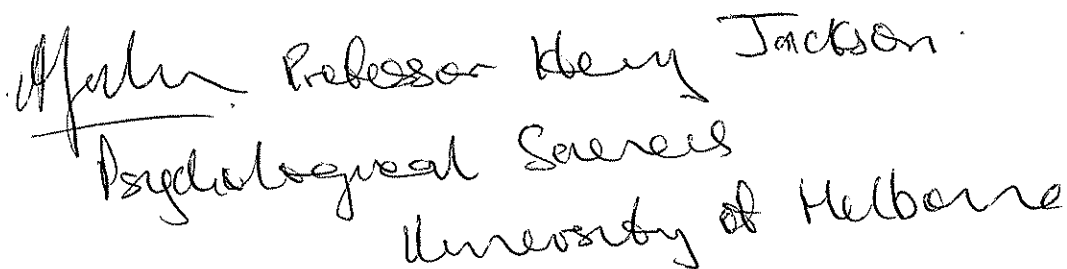 Professor Henry Jackson.
Psychological Sciences
University of Melbourne